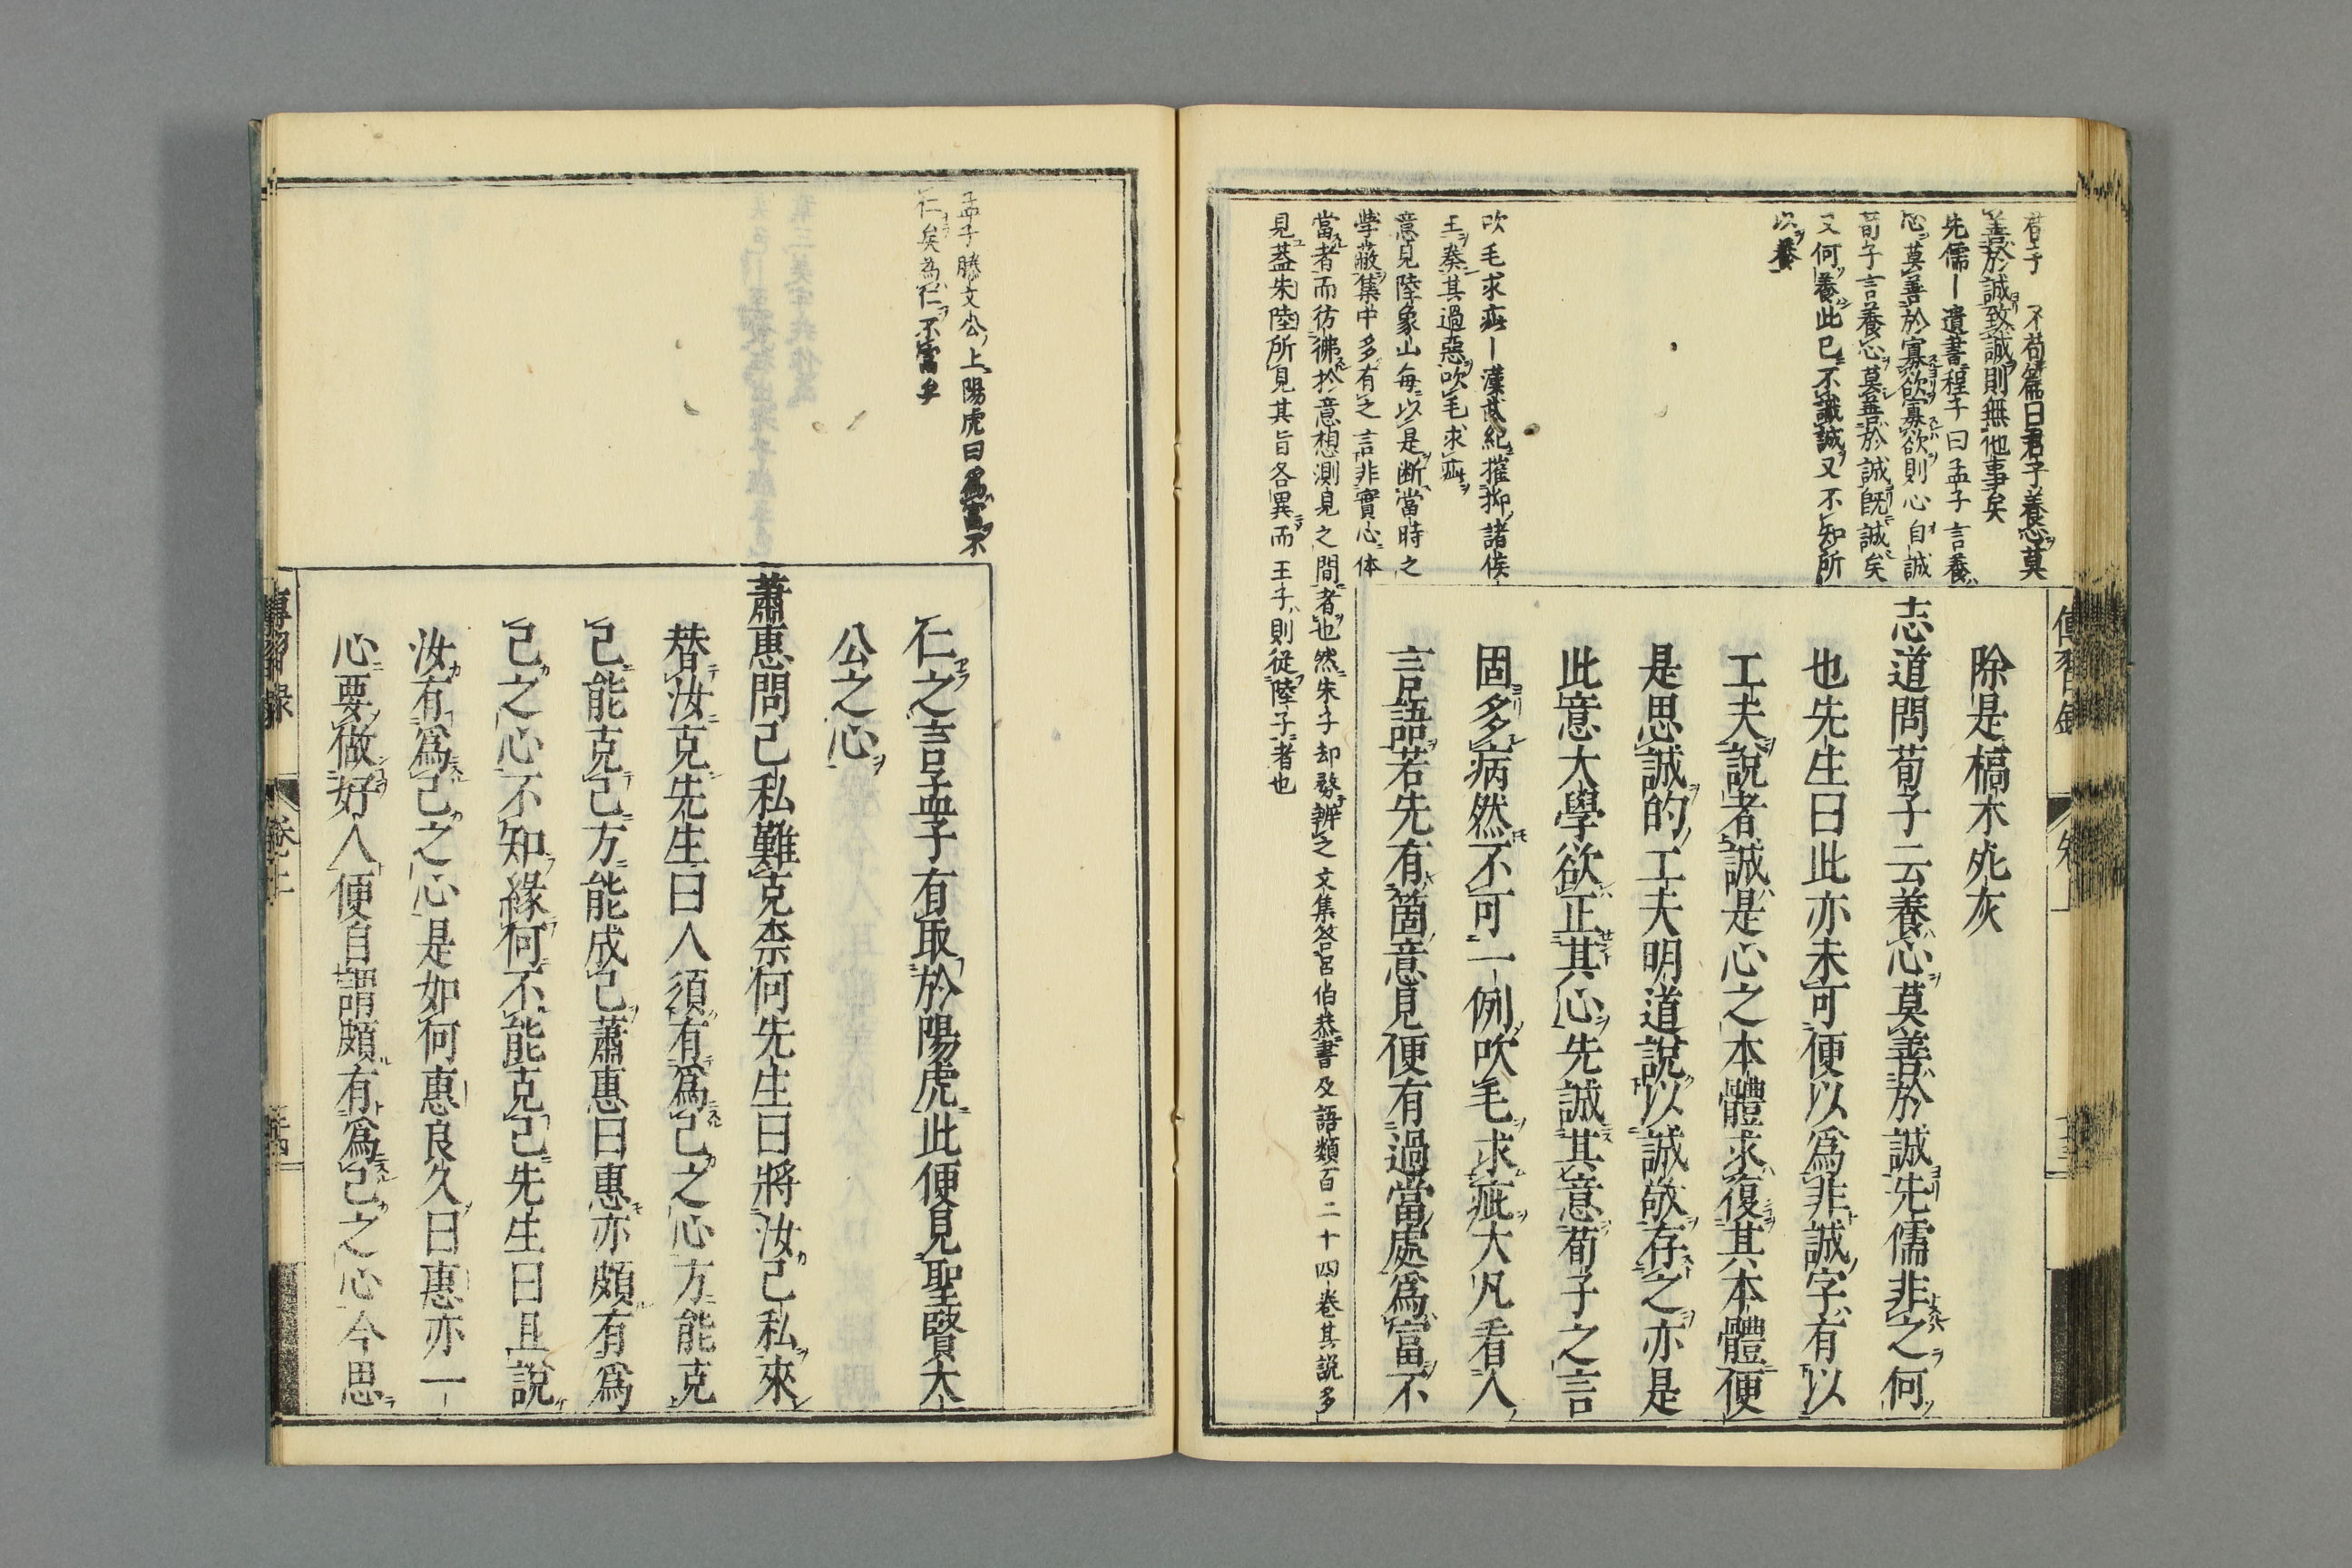 傳習録
卷上
荀子 不苟篇曰君子養心莫
善於誠致誠則無他事矣
先儒ー遺書程子曰孟子言養
心莫善於寡欲寡欲則心自誠
荀子言養心莫善於誠既誠矣
又何養此已不識誠又不知所
以養
吹毛求疵ー漢武紀摧抑諸侯
王奏其過惡吹毛求疵
意見陸象山每以是断當時之
學蔽集中多有之言非實心体
當者而彷彿於意想測見之間者也然朱子却努辨之文集答呂伯恭書及語類百二十四卷其説多
見蓋朱陸所見其旨各異而王子則從陸子者也
除是槁木死灰
志道問荀子云養心莫善於誠先儒非之何
也先生曰此亦未可便以爲非誠字有以
工夫說者誠是心之本體求復其本體便
是思誠的工夫明道說以誠敬存之亦是
此意大學欲正其心先誠其意荀子之言
固多病然不可一例吹毛求疵大凡看人
言語若先有箇意見便有過當處爲富不
孟子滕文公上陽虎曰爲富不
仁矣為仁不富矣
仁之言孟子有取於陽虎此便見聖賢大
公之心
蕭惠問己私難克柰何先生曰將汝己私來
替汝克先生曰人須有爲己之心方能克
己能克己方能成己蕭惠曰惠亦頗有爲
己之心不知緣何不能克己先生曰且說
汝有爲己之心是如何惠良久曰惠亦一
心要做好人便自謂頗有爲己之心今思
傳習錄
卷上